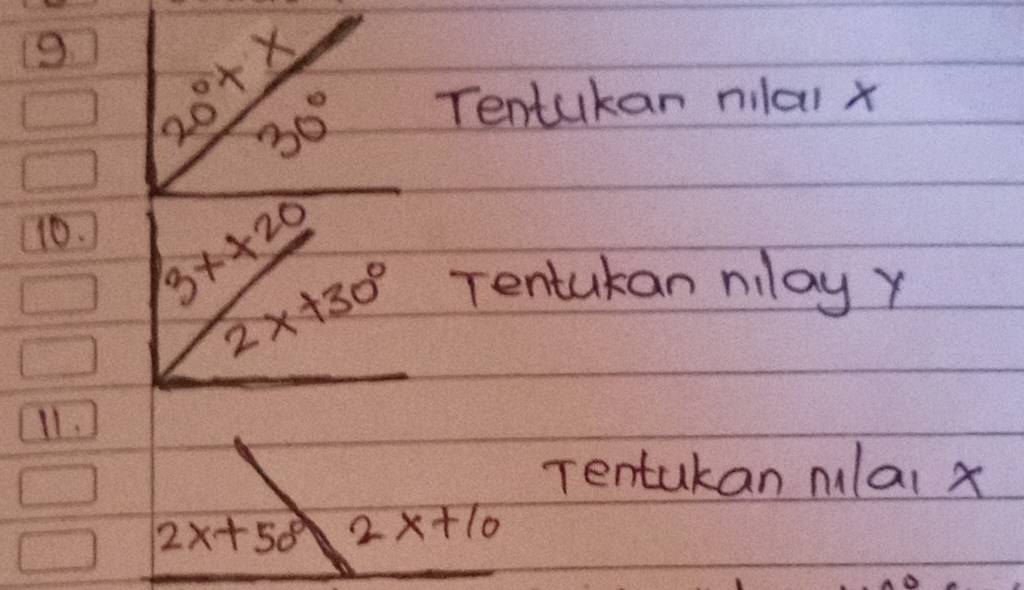 9.
20° + x
30°
Tentukan nilai x
10.
3x + 20
2x + 30°
Tentukan nilay y
11.
Tentukan nilai x
2x + 50°
2x + 10